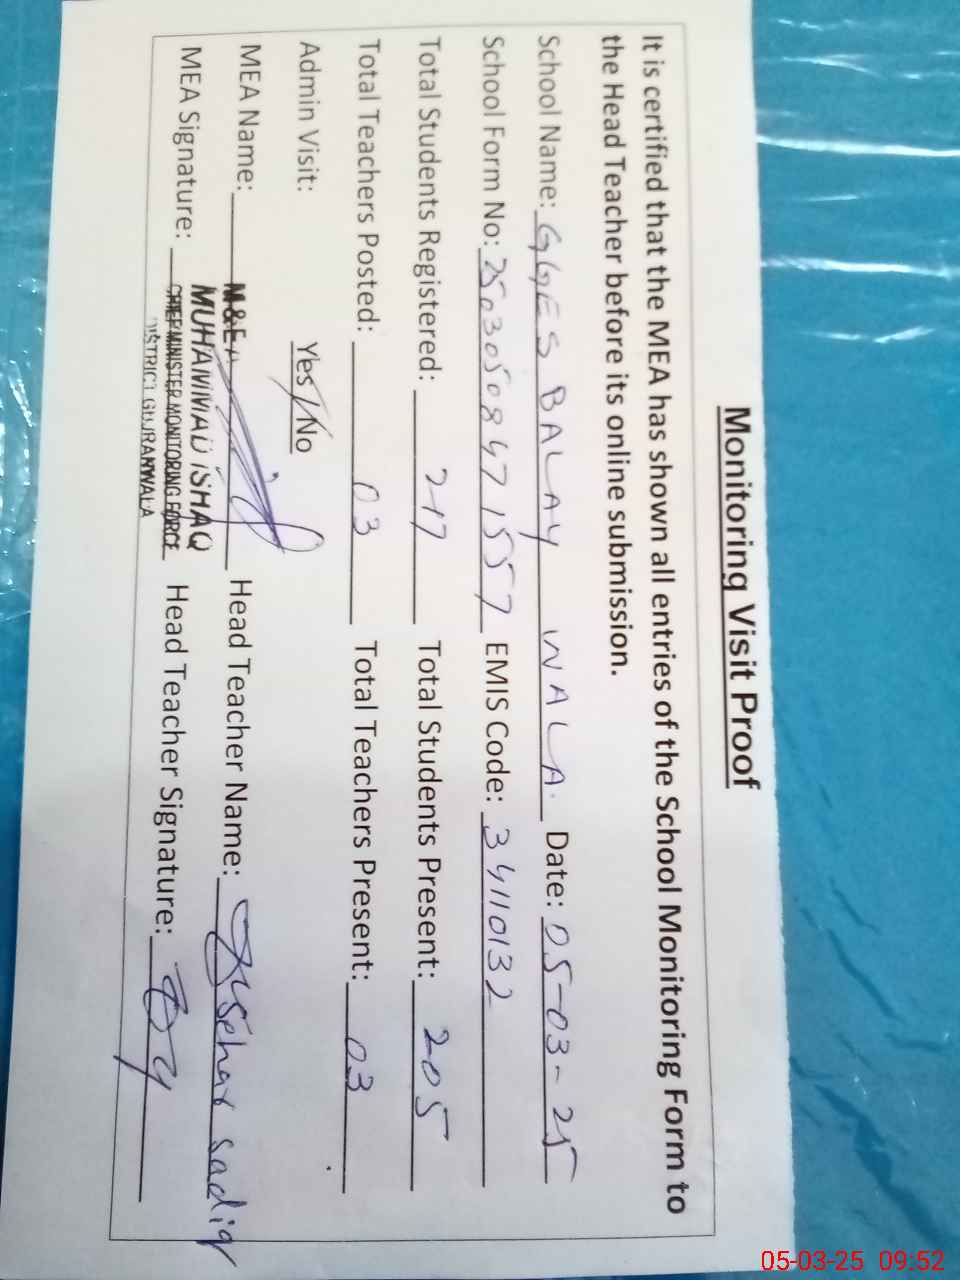 Monitoring Visit Proof
It is certified that the MEA has shown all entries of the School Monitoring Form to
the Head Teacher before its online submission.
School Name: GGES BALAY WALA. Date: 05-03-25
School Form No: 25030508471557 EMIS Code: 34110132
Total Students Registered: 217 Total Students Present: 205
Total Teachers Posted: 03 Total Teachers Present: 03
Admin Visit: Yes/No
MEA Name: M&EA Head Teacher Name: sehar sadiq
MUHAMMAD ISHAQ
MEA Signature: CHIEF MINISTER MONITORING FORCE Head Teacher Signature:
DISTRICT GUJRANWALA
05-03-25 09:52